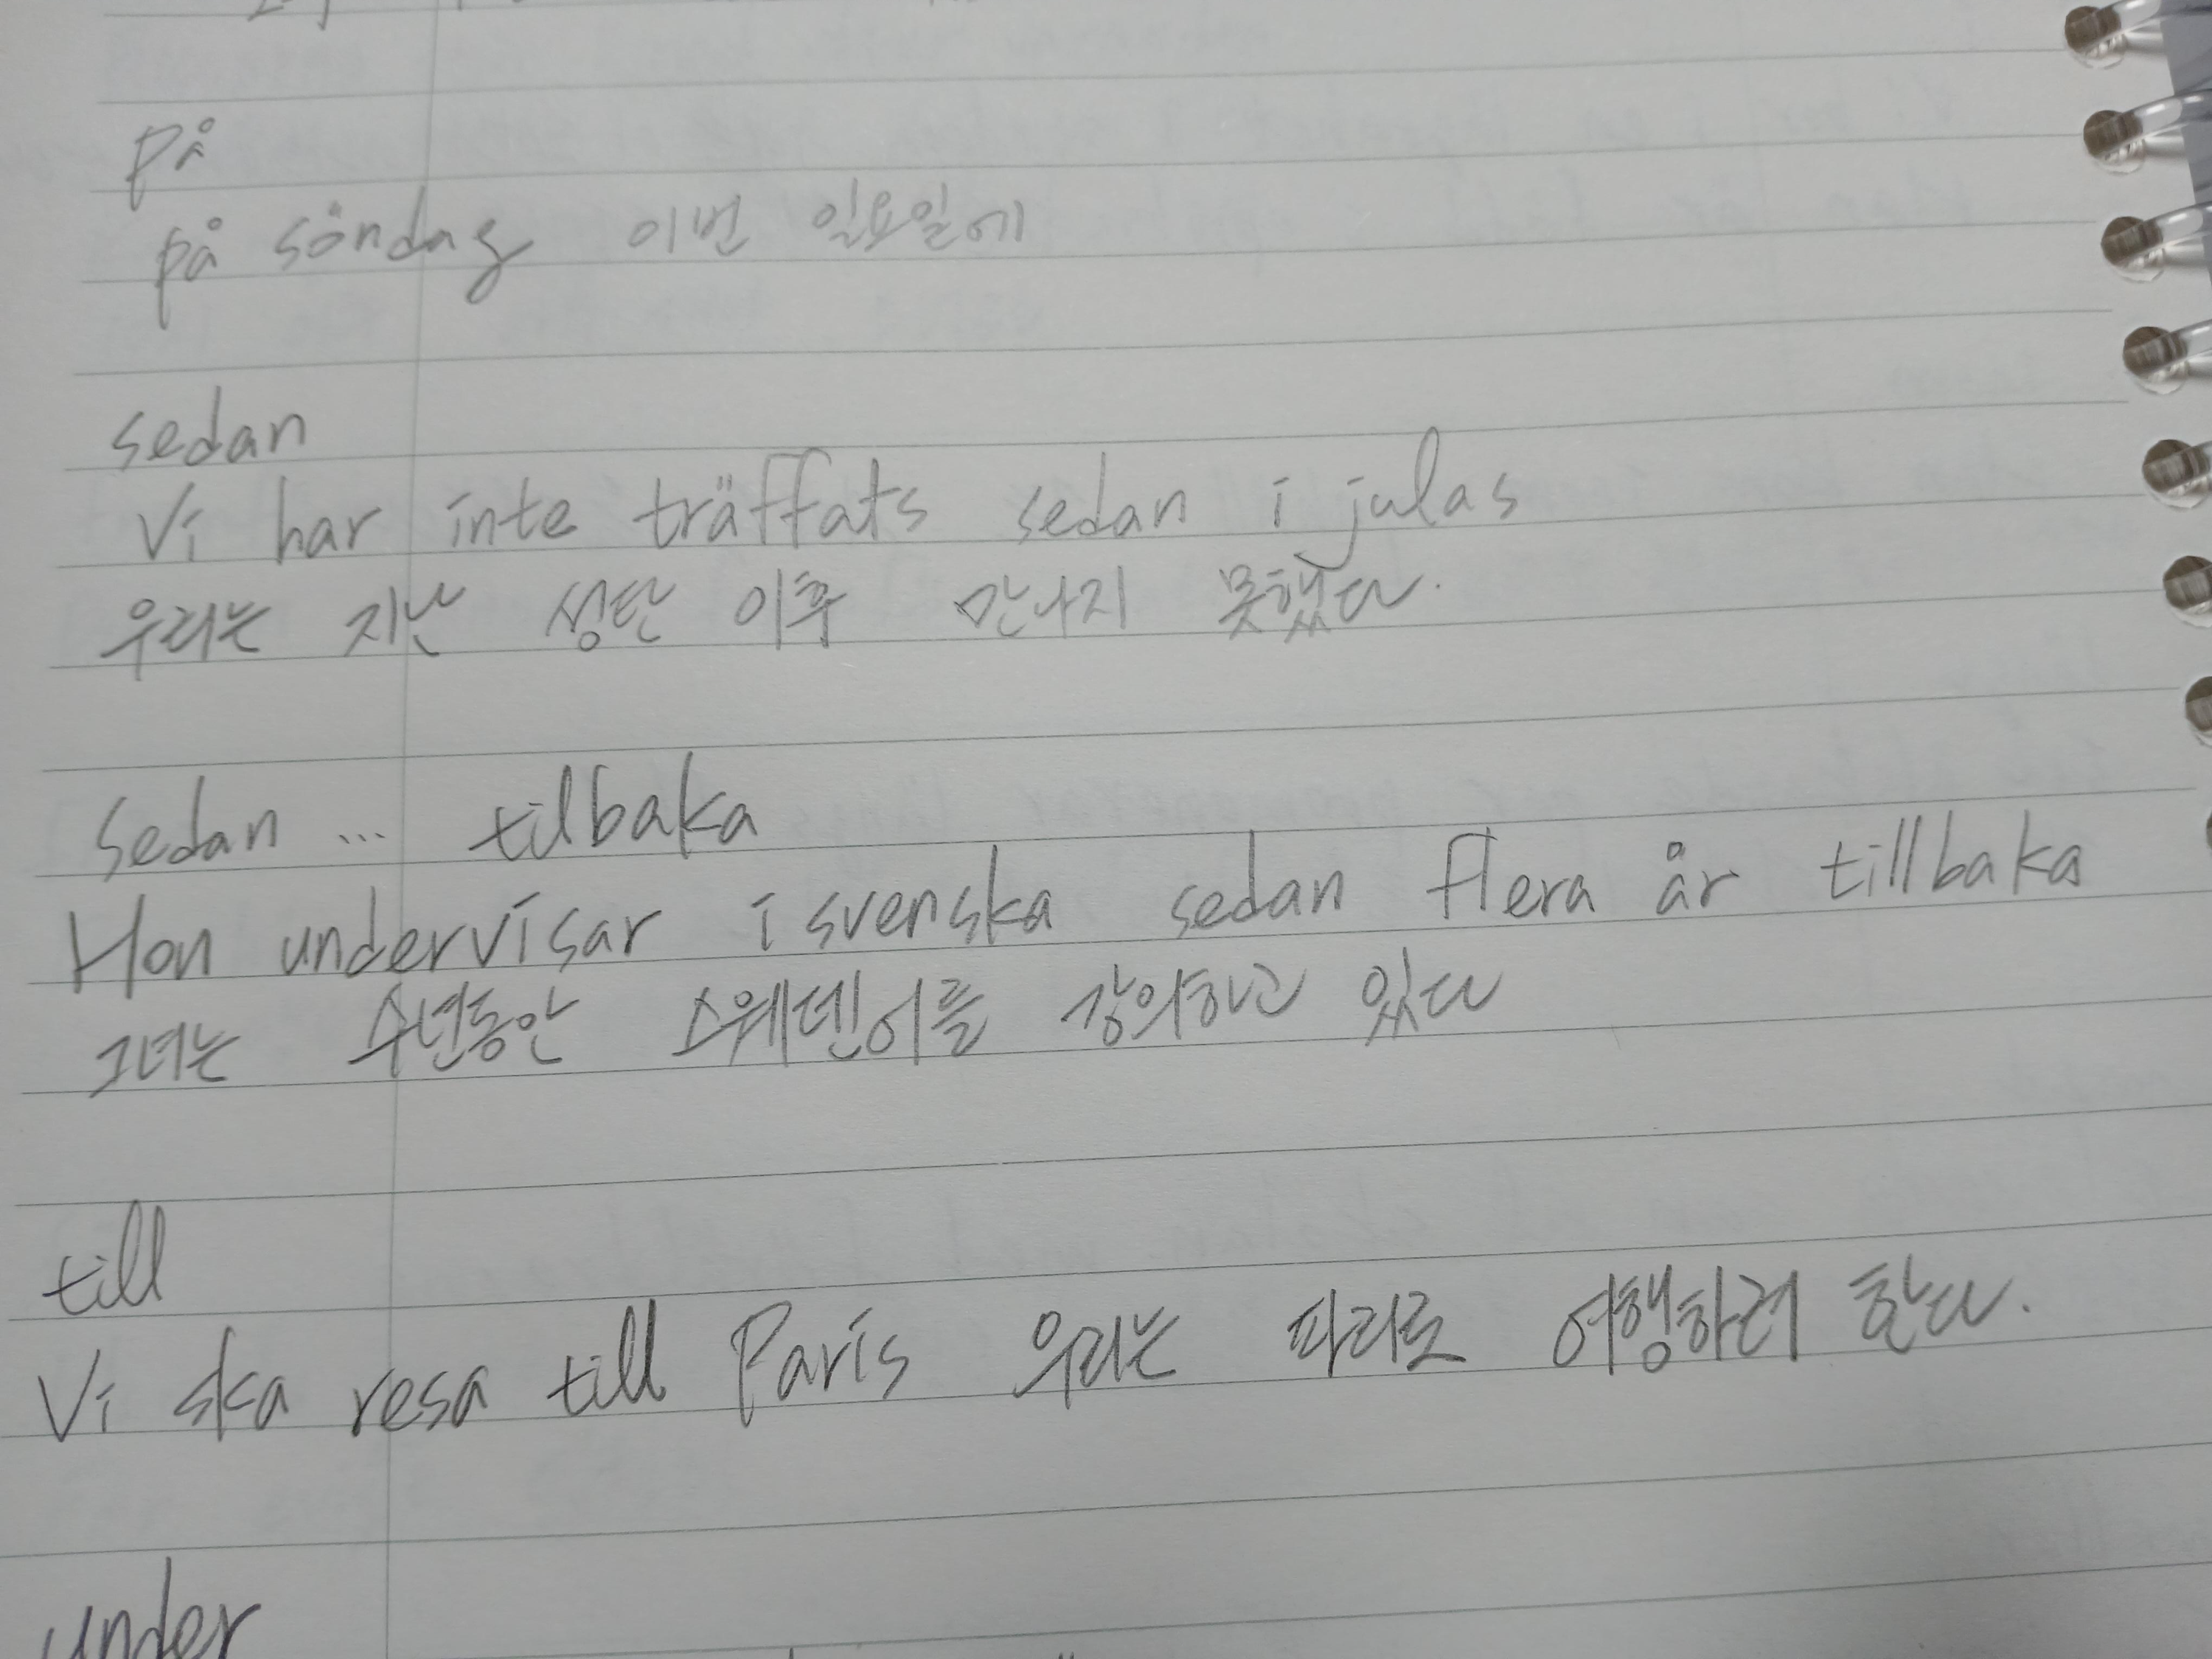 på
på söndag 이번 일요일에
sedan
Vi har inte träffats sedan i julas
우리는 지난 성탄 이후 만나지 못했다.
sedan ... tilbaka
Hon undervisar i svenska sedan flera år tillbaka
그녀는 수년동안 스웨덴어를 강의하고 있다
till
Vi ska resa till Paris 우리는 파리로 여행하려 한다.
under